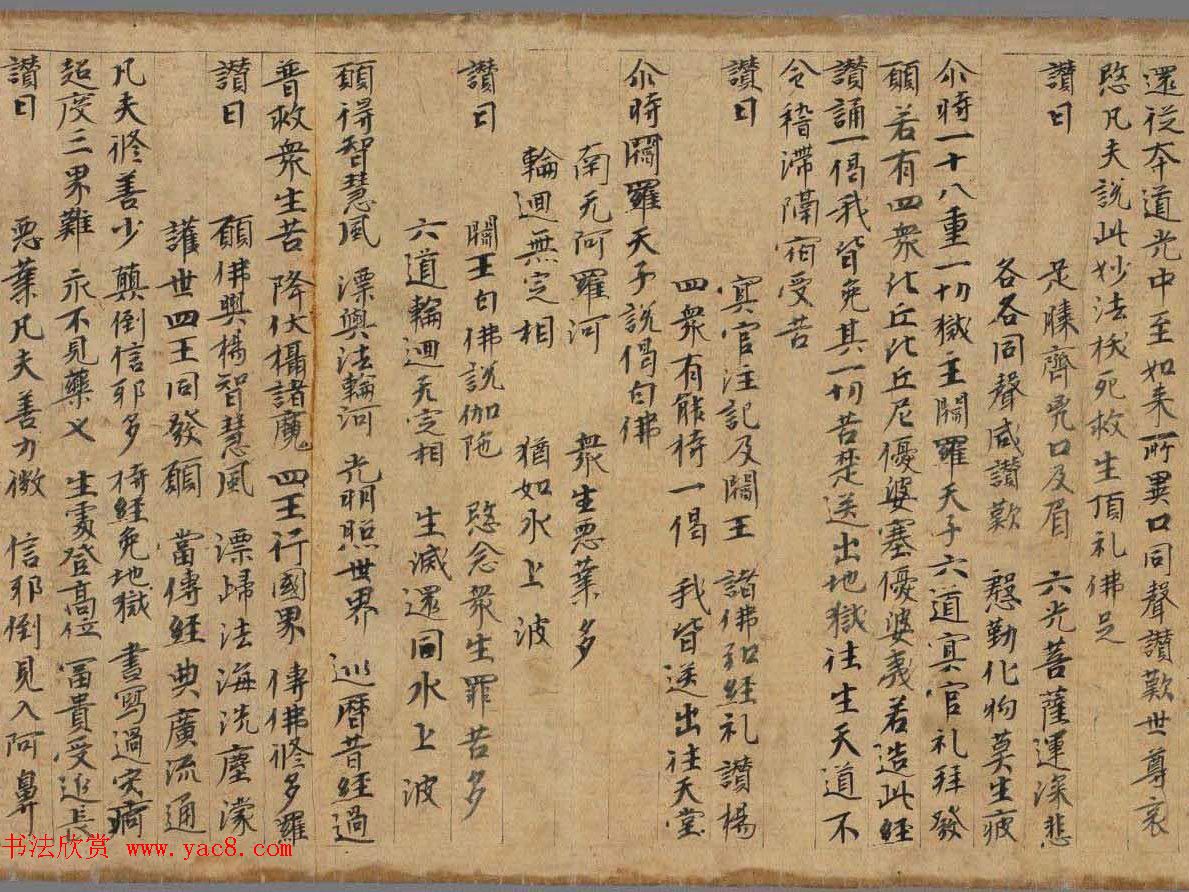 還從本道光中至如来所異口同聲讃歎世尊哀
慜凡夫說此妙法拔死救生頂礼佛足
讃曰
足膝齊㒵口及眉 六光菩薩運深悲
各各同聲咸讃歎 慇勤化物莫生疲
尒時一十八重一切獄主閻羅天子六道冥官礼拜發
願若有四衆比丘比丘尼優婆塞優婆夷若造此經
讃誦一偈我皆免其一切苦楚送出地獄往生天道不
令稽滯隔宿受苦
讃曰
冥官注記及閻王 諸佛弘經礼讃揚
四衆有能持一偈 我皆送出往天堂
尒時閻羅天子說偈白佛
南无阿羅河 衆生悪業多
輪迴無定相 猶如水上波
讃曰
閻王白佛說伽陁 慜念衆生罪苦多
六道輪迴无定相 生滅還同水上波
願得智慧風 漂與法輪河 光明照世界 巡曆昔經過
普救衆生苦 降伏攝諸魔 四王行國界 傳佛修多羅
讃曰
願佛興揚智慧風 漂歸法海洗塵濛
護世四王同發願 當傳經典廣流通
凡夫修善少 顛倒信邪多 持經免地獄 書寫過灾痾
超度三界難 永不見藥叉 生處登高位 冨貴受延長
讃曰
悪業凡夫善力微 信邪倒見入阿鼻
书法欣赏 www.yac8.com